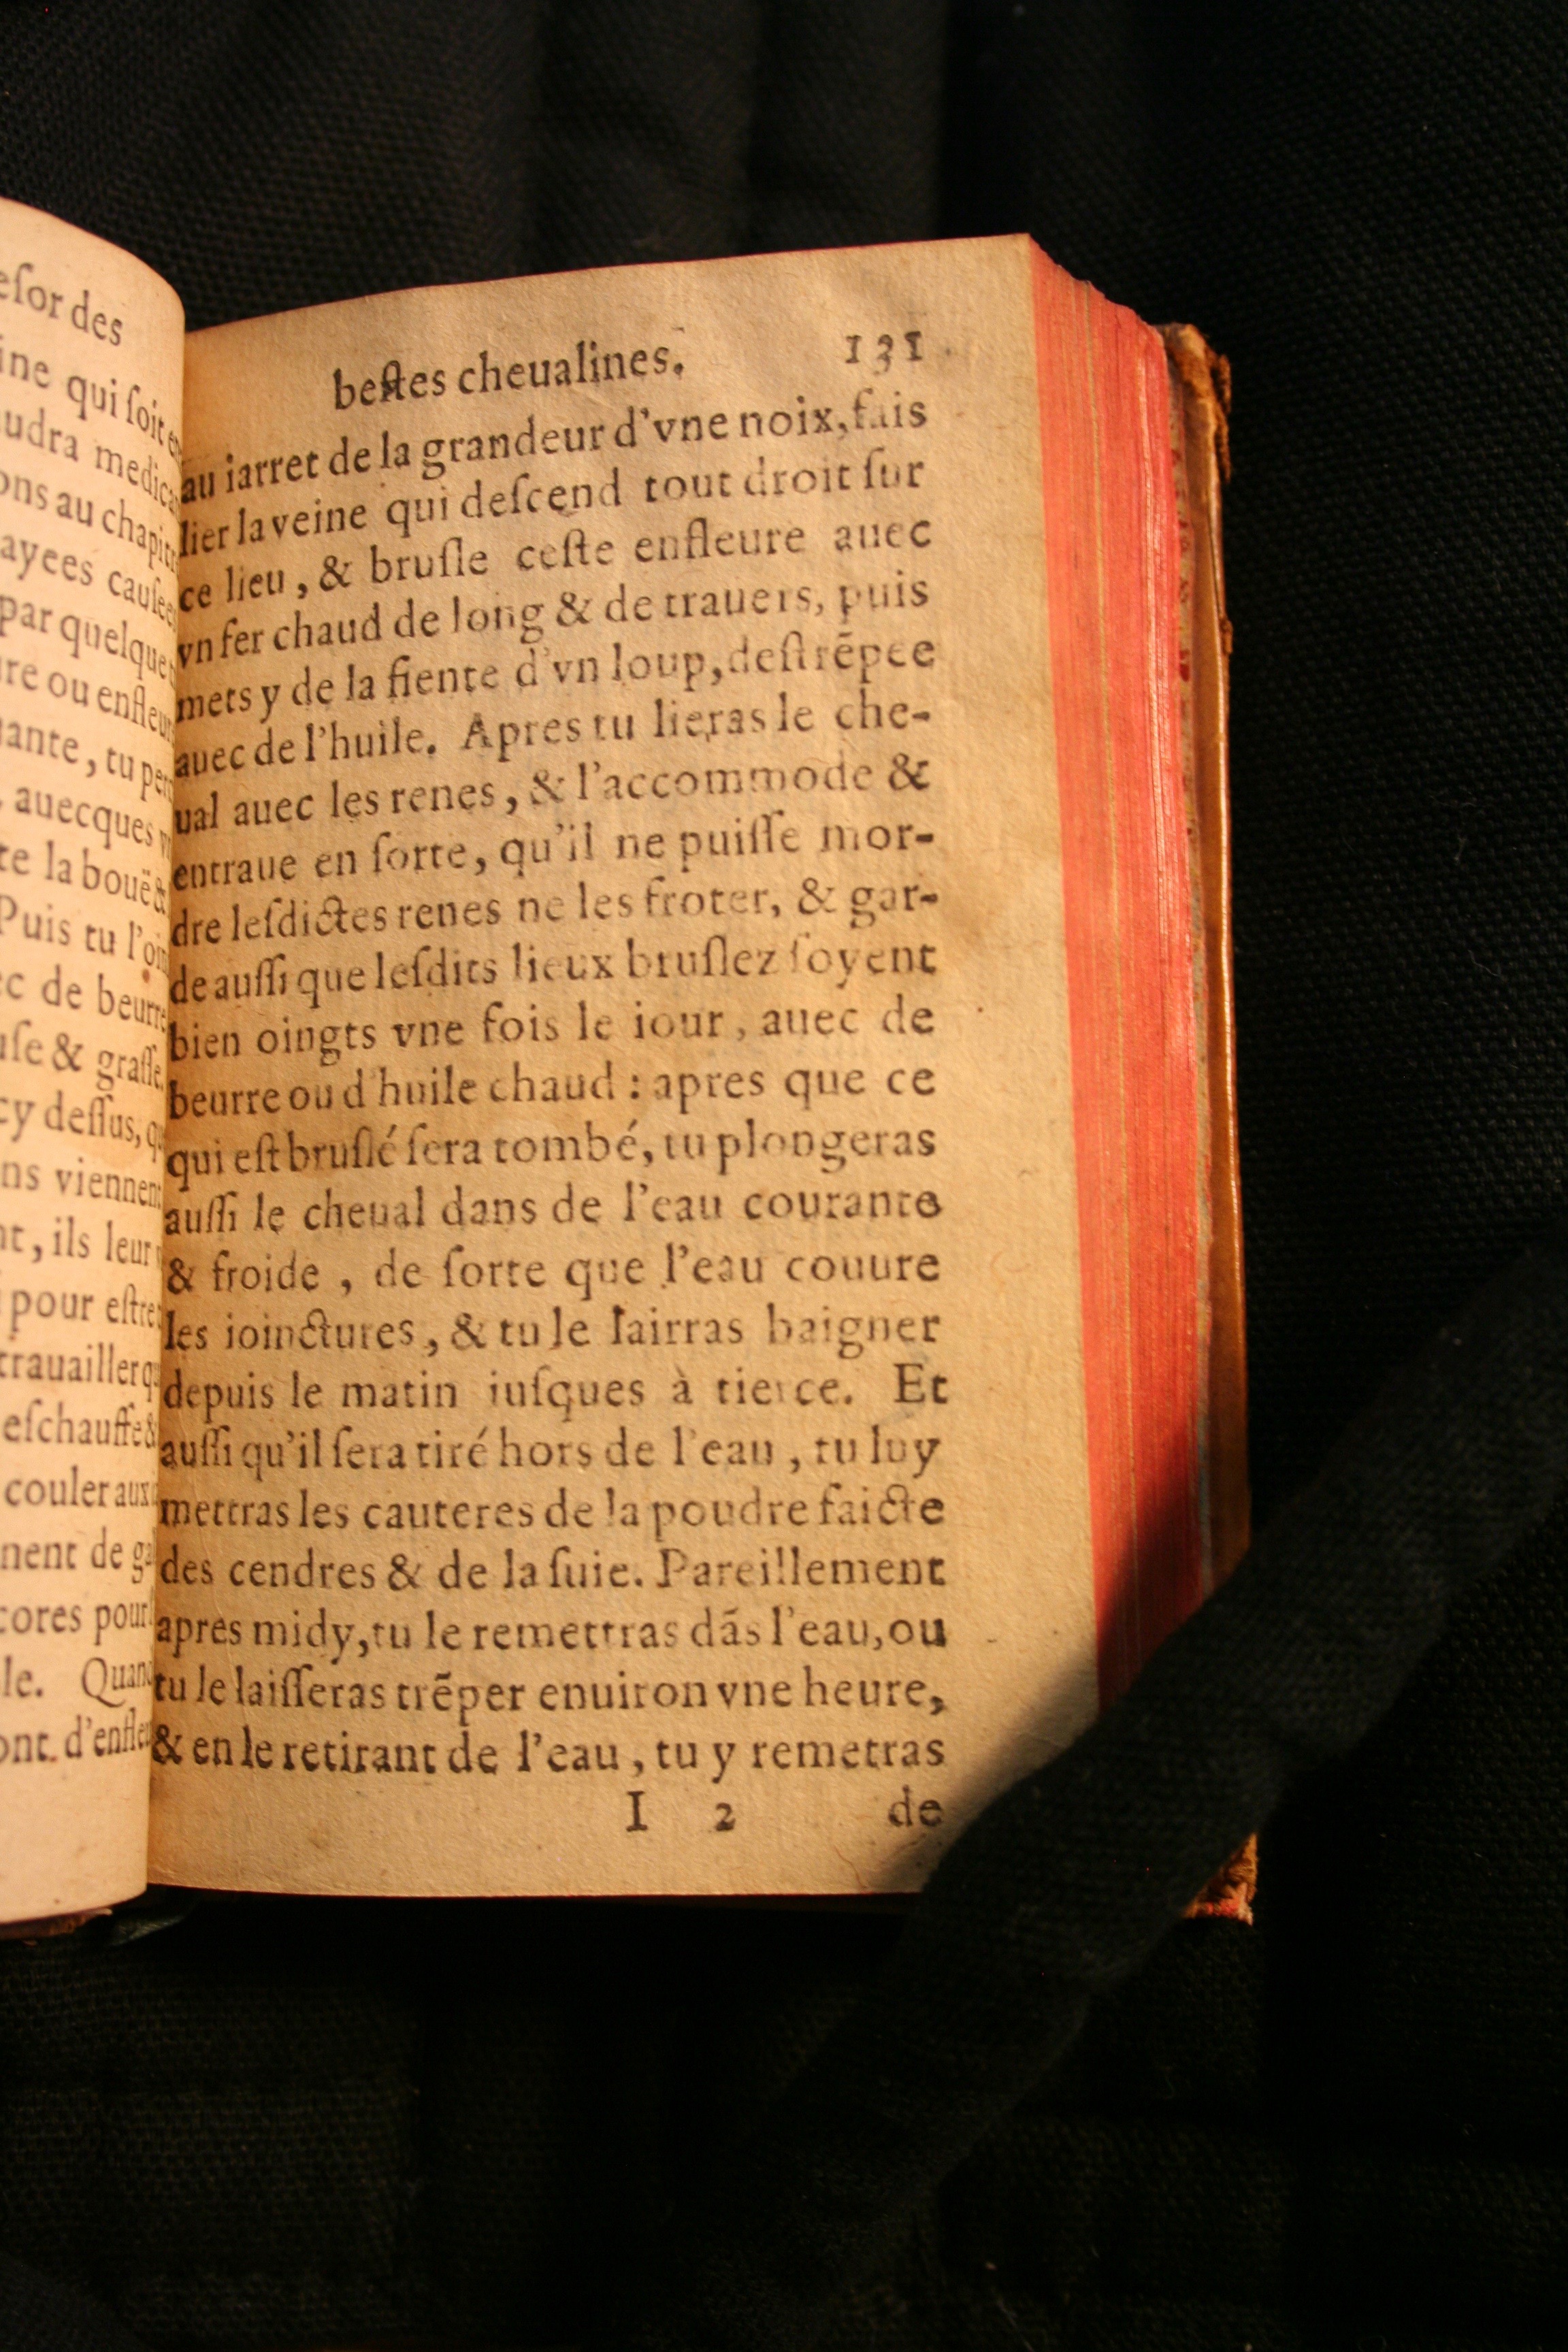 eſor des
ine qui ſoit
udra medica
ons au chapitr
ayees cauſee
par quelque
re ou enfleur
ante, tu per
auecques
te la bouë &
Puis tu l'oin
ec de beurre
uſe & graſſe.
cy deſſus, qu
ns viennent
nt, ils leur
pour eſtre
trauailler qu
eſchauffe &
couler aux
nent de ga
cores pour
le. Quand
ont d'enfleu
beſtes cheualines. 131
au iarret de la grandeur d'vne noix, fais
lier la veine qui deſcend tout droit ſur
ce lieu, & bruſle ceſte enfleure auec
vn fer chaud de long & de trauers, puis
mets y de la fiente d'vn loup, deſtrẽpee
auec de l'huile. Apres tu lieras le che-
ual auec les renes, & l'accommode &
entraue en ſorte, qu'il ne puiſſe mor-
dre leſdictes renes ne les froter, & gar-
de auſſi que leſdits lieux bruſlez ſoyent
bien oingts vne fois le iour, auec de
beurre ou d'huile chaud : apres que ce
qui eſt bruſlé ſera tombé, tu plongeras
auſſi le cheual dans de l'eau courante
& froide, de ſorte que l'eau couure
les ioinctures, & tu le lairras baigner
depuis le matin iuſques à tierce. Et
auſſi qu'il ſera tiré hors de l'eau, tu luy
mettras les cauteres de la poudre faicte
des cendres & de la ſuie. Pareillement
apres midy, tu le remettras dãs l'eau, ou
tu le laiſſeras trẽper enuiron vne heure,
& en le retirant de l'eau, tu y remetras
I 2 de